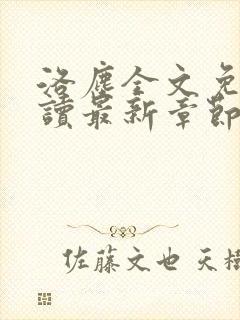 洛塵全文免
讀最新章節
佐藤文也 天樹